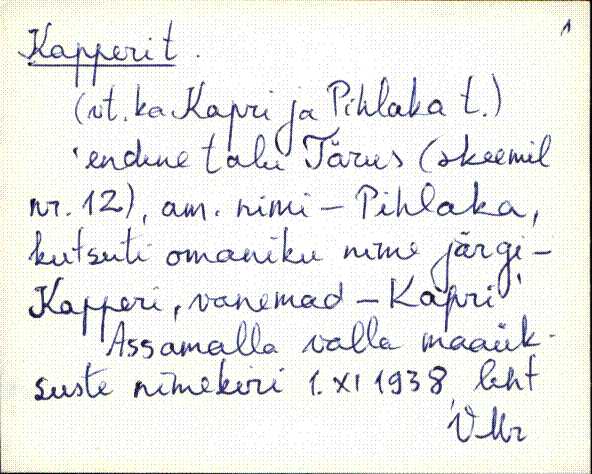 1
Kapperi t.
(vt. ka Kapri ja Pihlaka t.)
'endine talu Tärus (skeemil
nr. 12), am. nimi - Pihlaka,
kutsuti omaniku nime järgi -
Kapperi, vanemad - Kapri'
Assamalla valla maaük-
suste nimekiri 1. XI 1938, leht
VMr